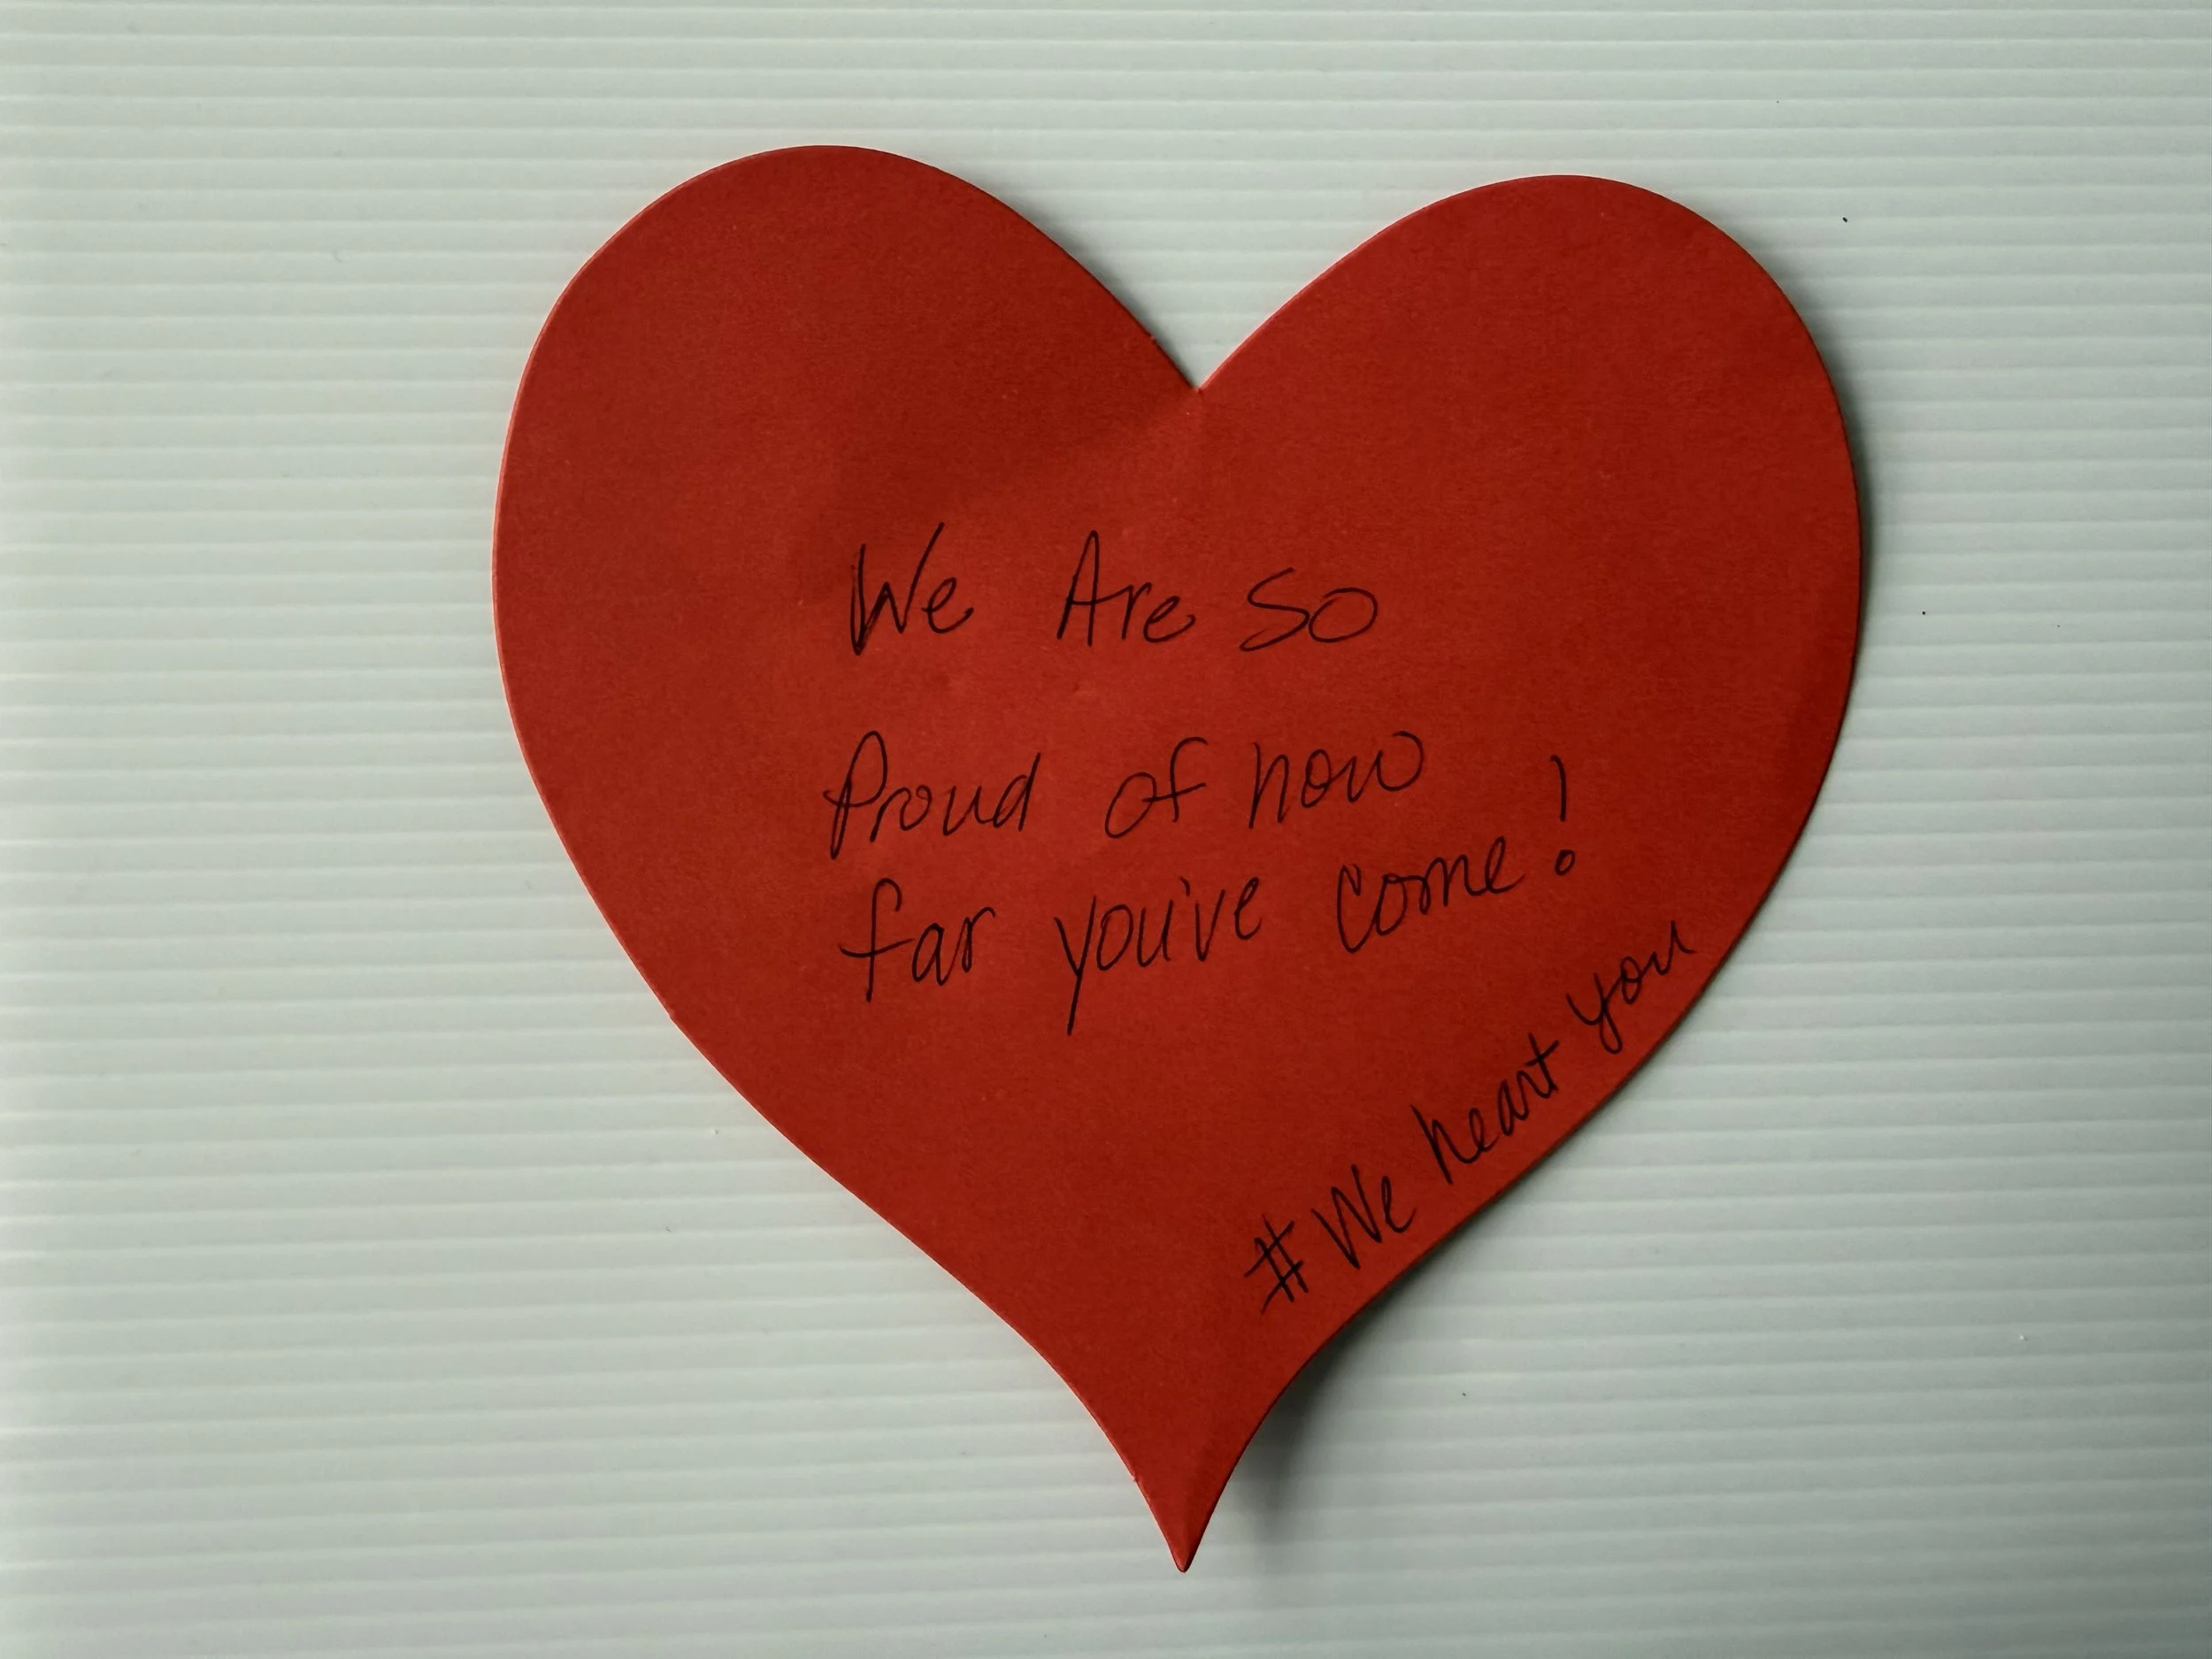 We Are So
Proud of how
far you've come!
# We heart you